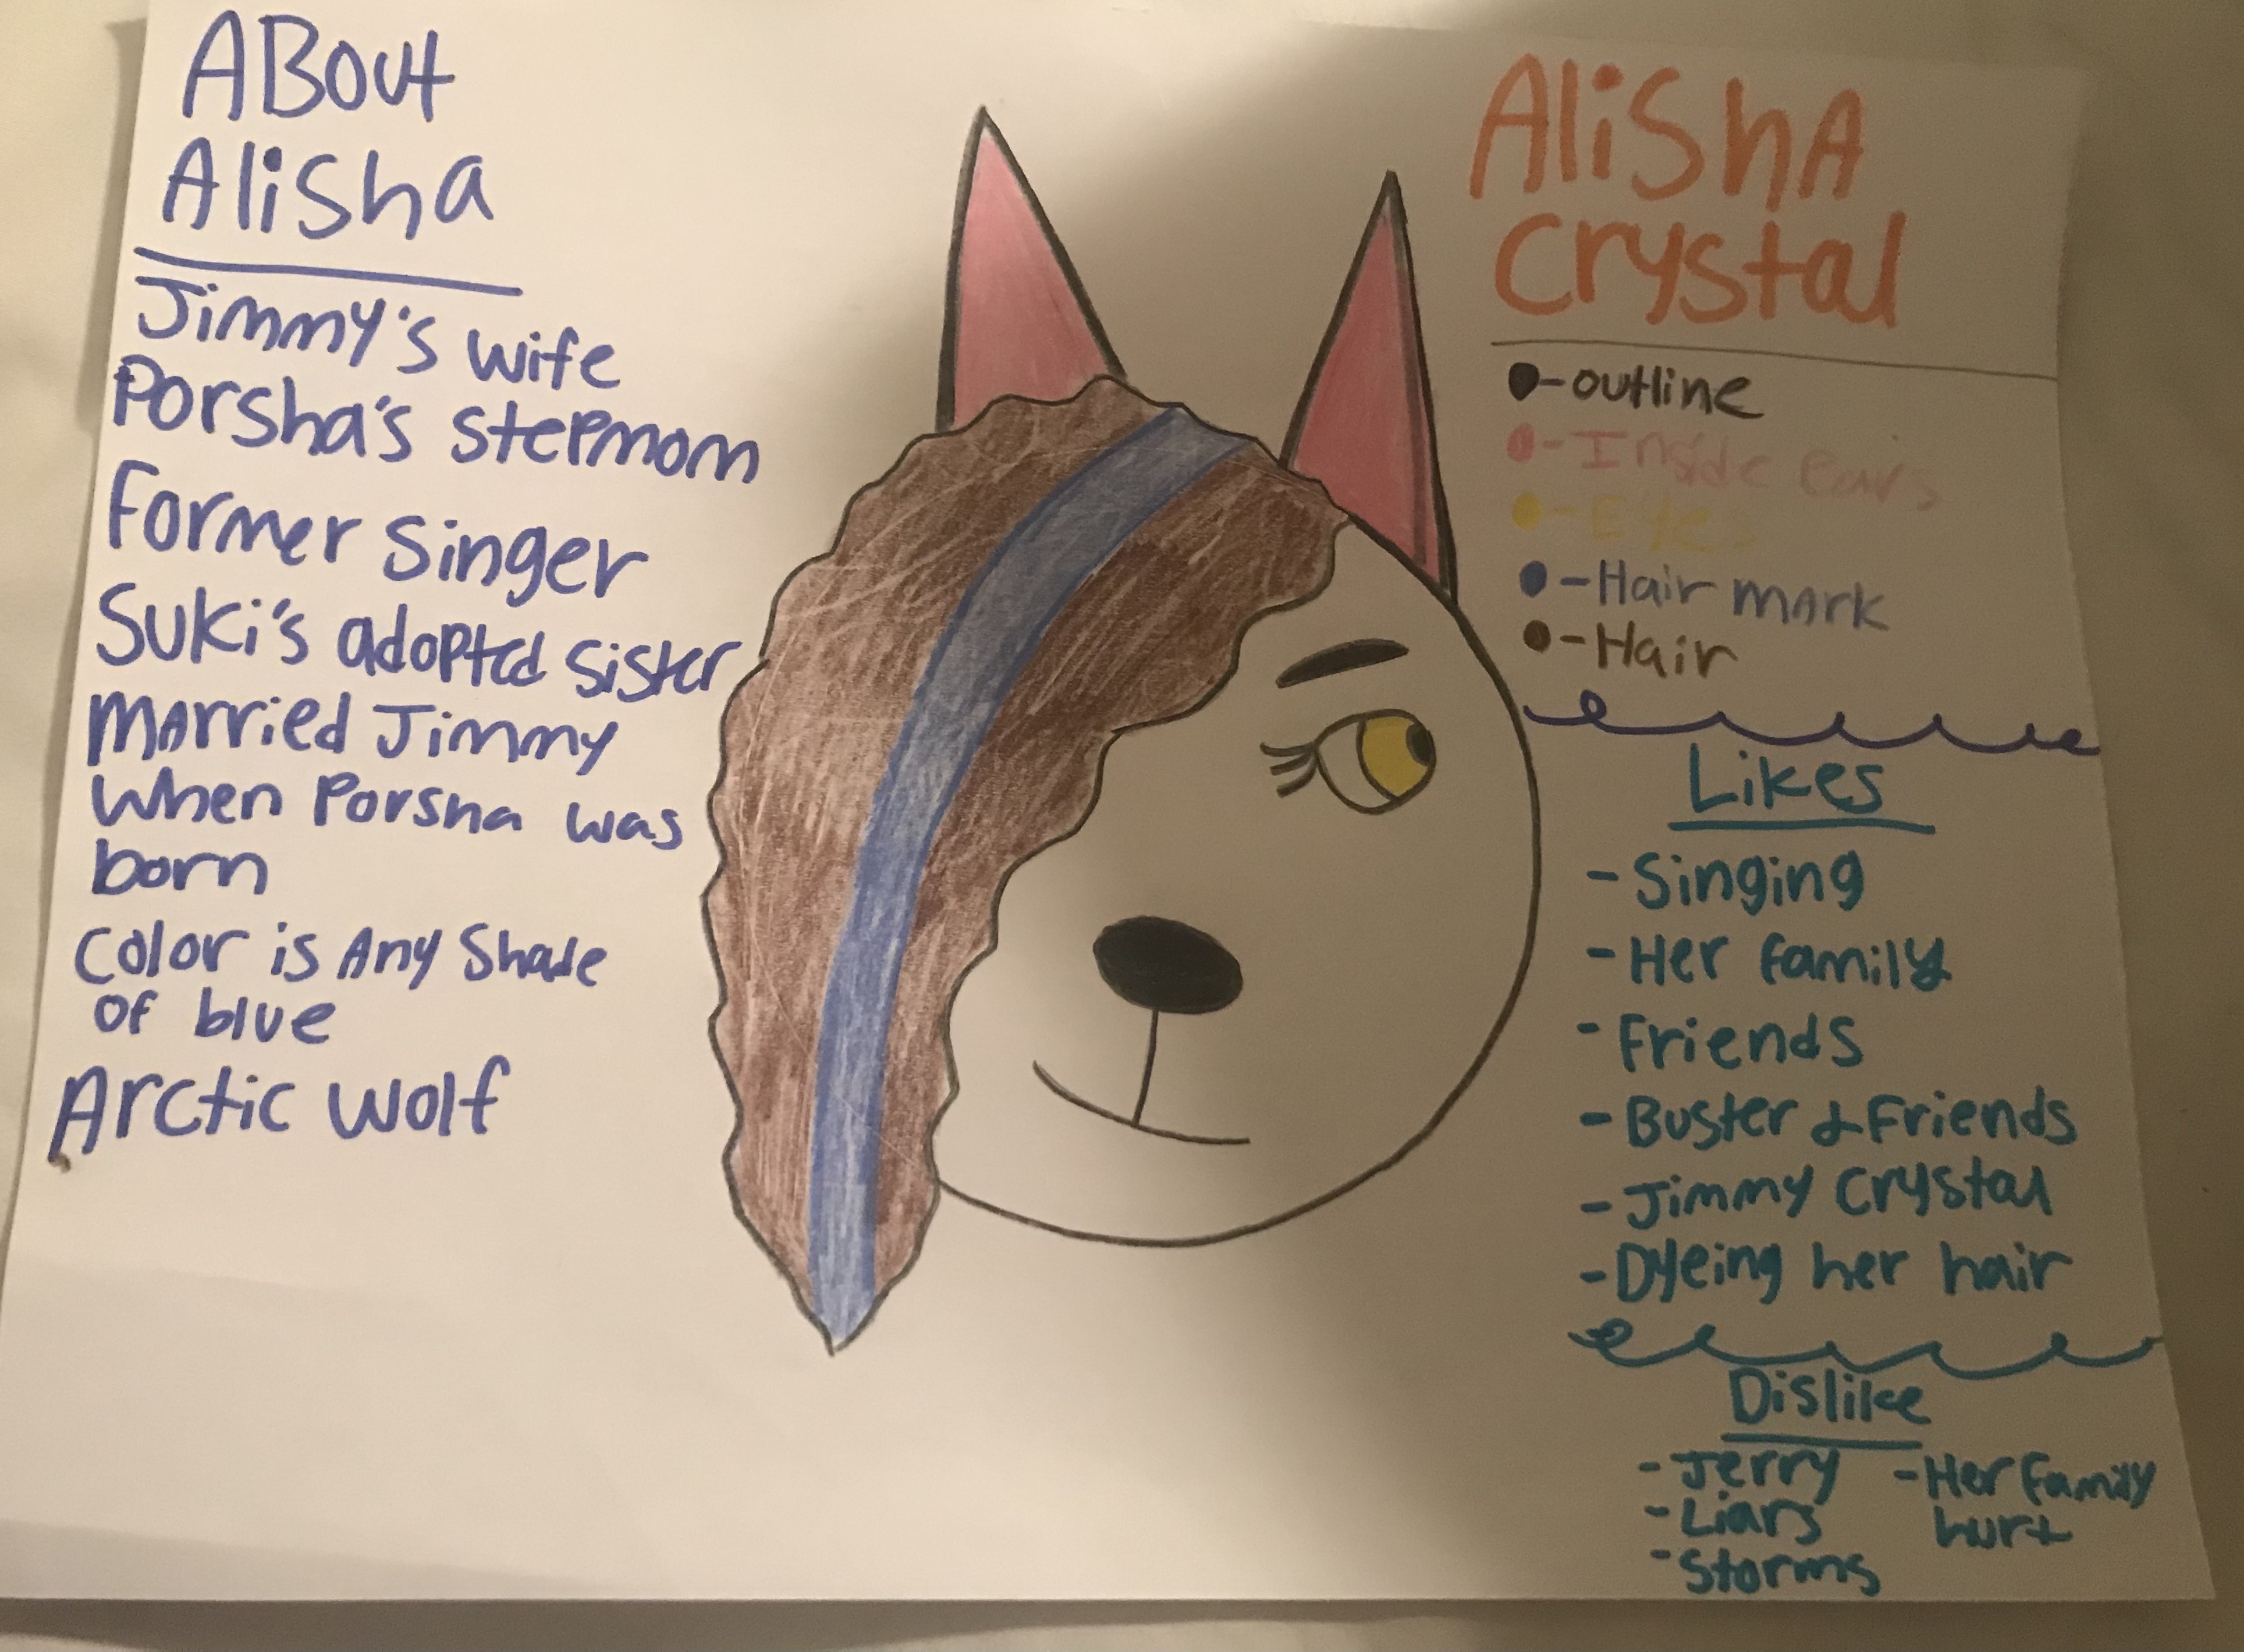 ABout
Alisha
Jimmy's wife
Porsha's stepmom
Former Singer
Suki's adopted sister
married Jimmy
when Porsha was
born
color is Any Shade
of blue
Arctic wolf
AlishA
crystal
-outline
-Inside ears
-Eyes
-Hair mark
-Hair
Likes
-Singing
-Her family
-Friends
-Buster & Friends
-Jimmy Crystal
-Dyeing her hair
Dislike
-Jerry
-Liars
-Storms
-Her family
hurt